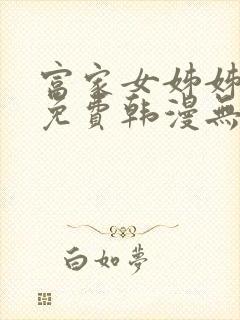 富家女姊姊
免費韩漫無
白如夢